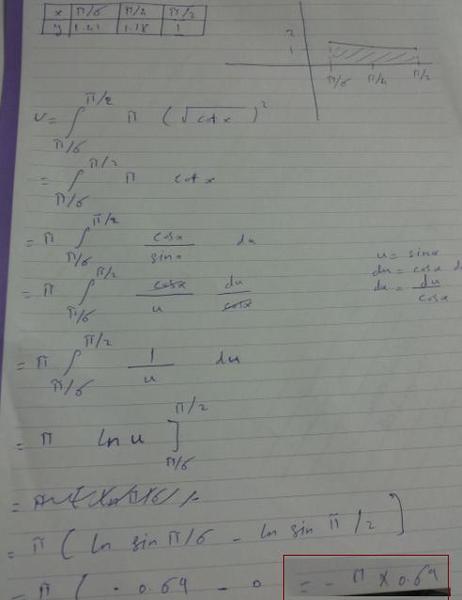 x π/6 π/2 π/2
y 1.21 1.18 1
2
1
π/6 π/2 π/2
V = ∫ π/6 π/2 π (√cot x)²
= ∫ π/6 π/2 π cot x
= π ∫ π/6 π/2 cosx / sinx dx
u = sinx
du = cosx dx
dx = du / cosx
= π ∫ π/6 π/2 cosx / u du / cosx
= π ∫ π/6 π/2 1 / u du
= π ln u ] π/6 π/2
= π ( ln sin π/6 - ln sin π/2 ]
= π ( - 0.69 - 0 = - π × 0.69